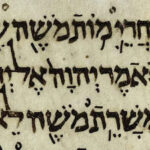 חֲרֵי מוֹת מֹשֶׁה ע
אמֶר יְהוָה אֶל יְה
מְשָׁרֵת מֹשֶׁה לֵא